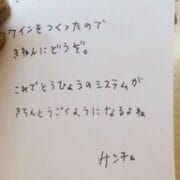 ワインをつくったので
きねんにどうぞ。
これでとうひょうのシステムが
きちんとうごくようになるよね
ケンヂ